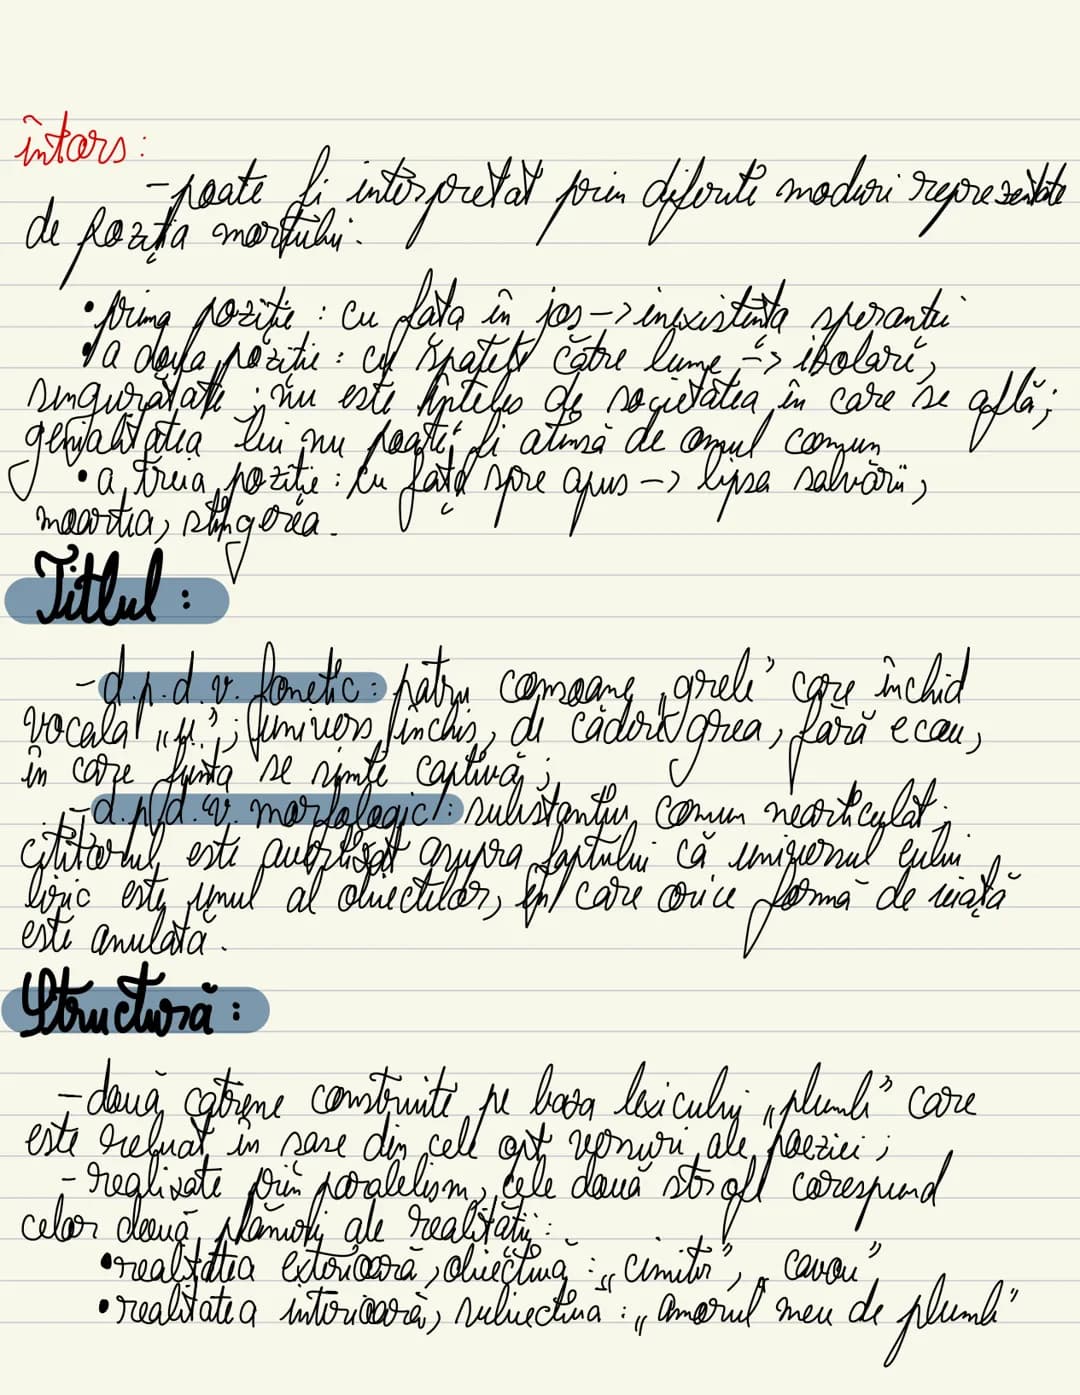 întors:
- poate fi interpretat prin diferite moduri reprezentate
de poziția mortului.
• prima poziție : cu fața în jos -> inexistența speranței
• a doua poziție : cu spatele către lume -> izolare,
singurătate ; nu este înțeles de societatea în care se află;
genialitatea lui nu poate fi atinsă de omul comun
• a treia poziție : cu fața spre apus -> lipsa salvării,
moartea, stingerea.
Titlul :
- d.p.d.v. fonetic : patru consoane „grele” care închid
vocala „u”; univers închis, de cădere grea, fără ecou,
în care ființa se simte captivă ;
- d.p.d.v. morfologic : substantiv comun nearticulat ;
cititorul este avertizat asupra faptului că universul eului
liric este unul al obiectelor, în care orice formă de viață
este anulată.
Structură :
- două catrene construite pe baza lexicului „plumb” care
este reluat în șase din cele opt versuri ale poeziei ;
- realizate prin paralelism, cele două strofe corespund
celor două planuri ale realității :
• realitatea exterioară, obiectivă : „cimitir”, „cavou”
• realitatea interioară, subiectivă : „amorul meu de plumb”